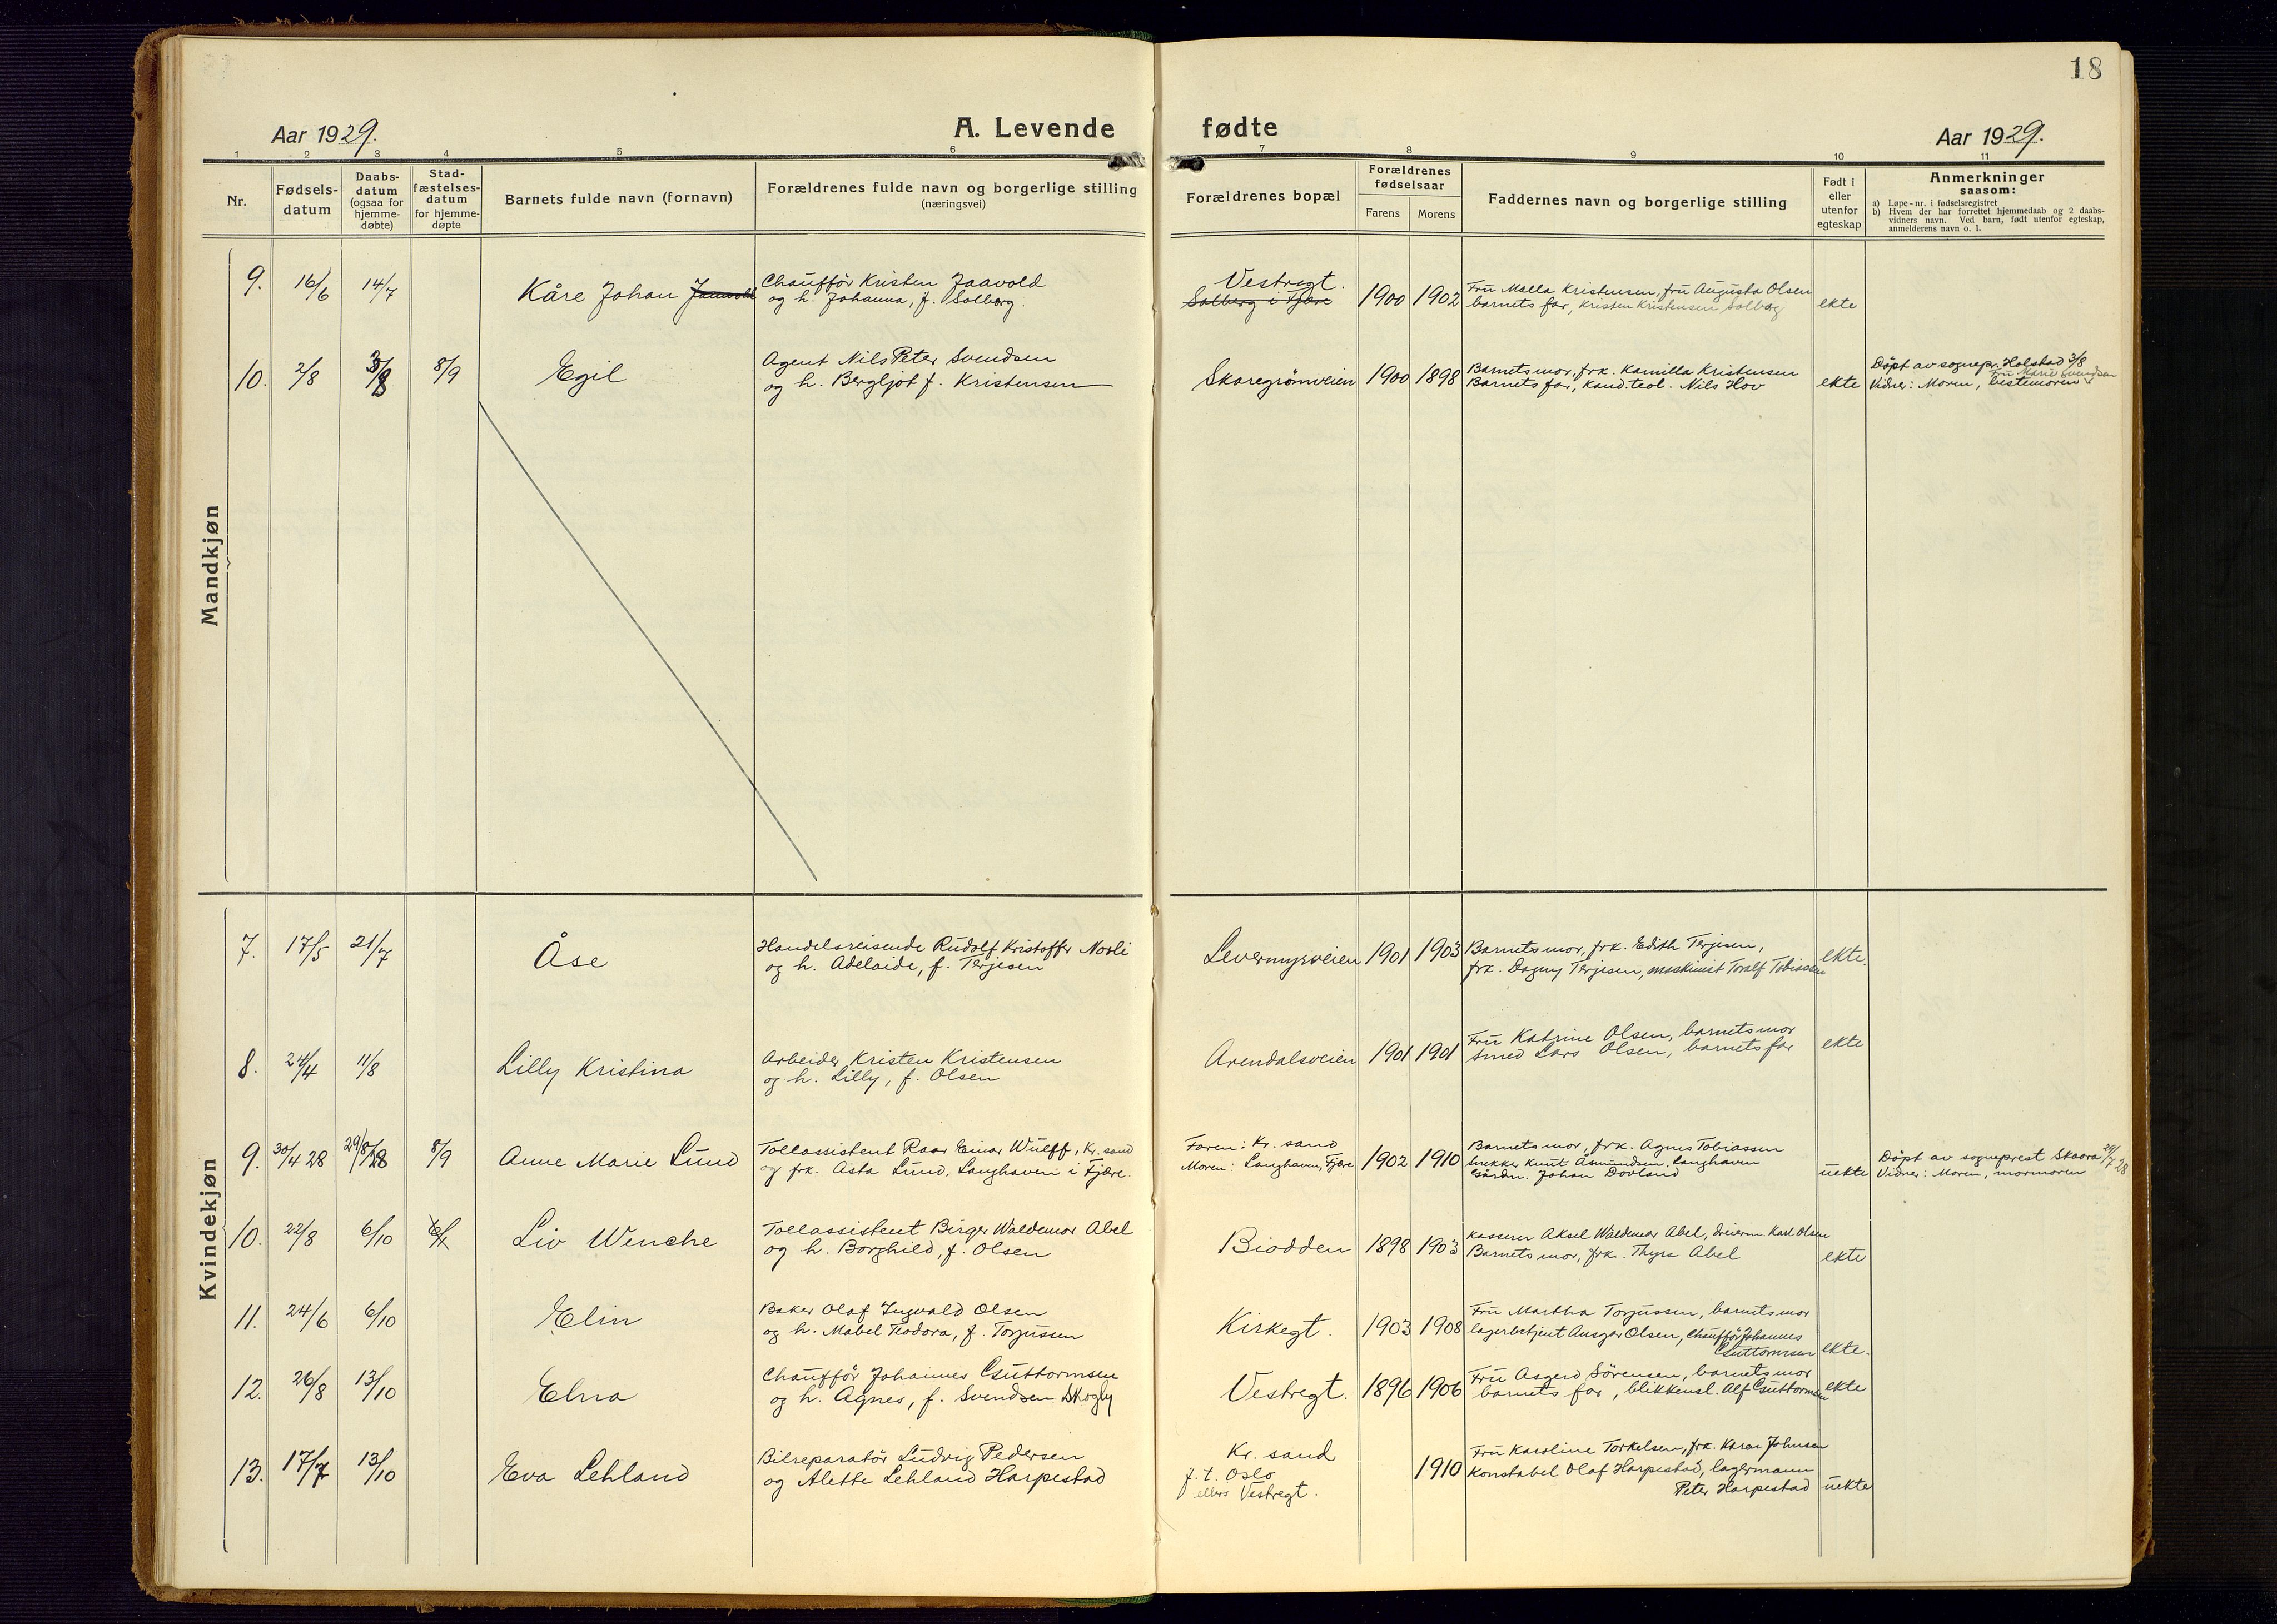 18
Aar 1929.
A. Levende fødte
Aar 1929.
1 2 3 4 5 6 7 8 9 10 11
Nr.
Fødsels-
datum
Daabs-
datum
(ogsaa for
hjemme-
døbte)
Stad-
fæstelses-
datum
for hjemme-
døpte
Barnets fulde navn (fornavn)
Forældrenes fulde navn og borgerlige stilling
(næringsvei)
Forældrenes bopæl
Forældrenes
fødselsaar
Farens Morens
Faddernes navn og borgerlige stilling
Født i
eller
utenfor
egteskap
Anmerkninger
saasom:
a) Løpe-nr. i fødselsregistret
b) Hvem der har forrettet hjemmedaab og 2 daabs-
vidners navn. Ved barn, født utenfor egteskap,
anmelderens navn o. l.
Mandkjøn
9. 16/6 14/7 Kåre Johan
Chaufför Kristen Jaavold
og h. Johanna, f. Solberg.
Vestregt.
Solberg i Fjære
1900 1902
Frü Malla Kristensen, frü Augusta Olsen
barnets far, Kristen Kristensen Solberg
ekte
10. 2/8 3/8 8/9 Egil
Agent Nils Peter Svendsen
og h. Bergljot f. Kristensen
Skaregrömveien 1900 1898
Barnets mor, frk. Kamilla Kristensen
Barnets far, Kand. teol. Nils Hov
ekte
Döpt av sognepr. Holstad 3/8
Frü Marie Svendsen
Vidner: Moren, bestemoren
Kvindekjøn
7. 17/5 21/7 Åse
Handelsreisende Rudolf Kristoffer Norli
og h. Adelaide, f. Terjesen
Levermyrveien 1901 1903
Barnets mor, frk. Edith Terjesen,
frk. Dagny Terjesen, maskinist Toralf Tobiassen
ekte.
8. 24/4 11/8 Lilly Kristina
Arbeider Kristen Kristensen
og h. Lilly, f. Olsen
Arendalsveien 1901 1901
Frü Katrine Olsen, barnets mor
Smed Lars Olsen, barnets far
ekte
9. 30/4 28 29/8 28 8/9 Anne Marie Lünd
Tollassistent Roar Einar Wülff, Kr. sand
og frk. Asta Lünd, Langhaven i Fjære.
Faren: Kr. sand
Moren: Langhaven, Fjære
1902 1910
Barnets mor, frk. Agnes Tobiassen
Snekker Knut Åsmundsen, Langhaven
Gårdn. Johan Dovland
üekte
Döpt av sogneprest Skaara 29/7 28
Vidner: Moren, mormoren
10. 22/8 6/10 Liv Wenche
Tollassistent Birger Waldemar Abel
og h. Borghild, f. Olsen
Biodden 1898 1903
Kasserer Aksel Waldemar Abel, dreierm. Karl Olsen
Barnets mor, frk. Thyra Abel
ekte
11. 24/6 6/10 Elin
Baker Olaf Ingvald Olsen
og h. Mabel Teodora, f. Torjüssen
Kirkegt. 1903 1908
Frü Martha Torjüssen, barnets mor
lagerbetjent Ansgar Olsen, chauffør Johannes
Gsüttormsen
ekte.
12. 26/8 13/10 Elna
Chauffør Johannes Gsüttormsen
og h. Agnes, f. Svendsen Skogly
Vestregt. 1896 1906
Frü Asgerd Sörensen, barnets mor
barnets far, blikkensl. Alf Gsüttormsen
ekte
13. 17/7 13/10 Eva Lehland
Bilreparatör Ludvig Pedersen
og Alette Lehland Harpestad
Kr. sand
f. t. Oslo
ellers Vestregt.
1910
Frü Karoline Torkelsen, frk. Karen Johnsen
Konstabel Olaf Harpestad, lagermann
Peter Harpestad
üekte